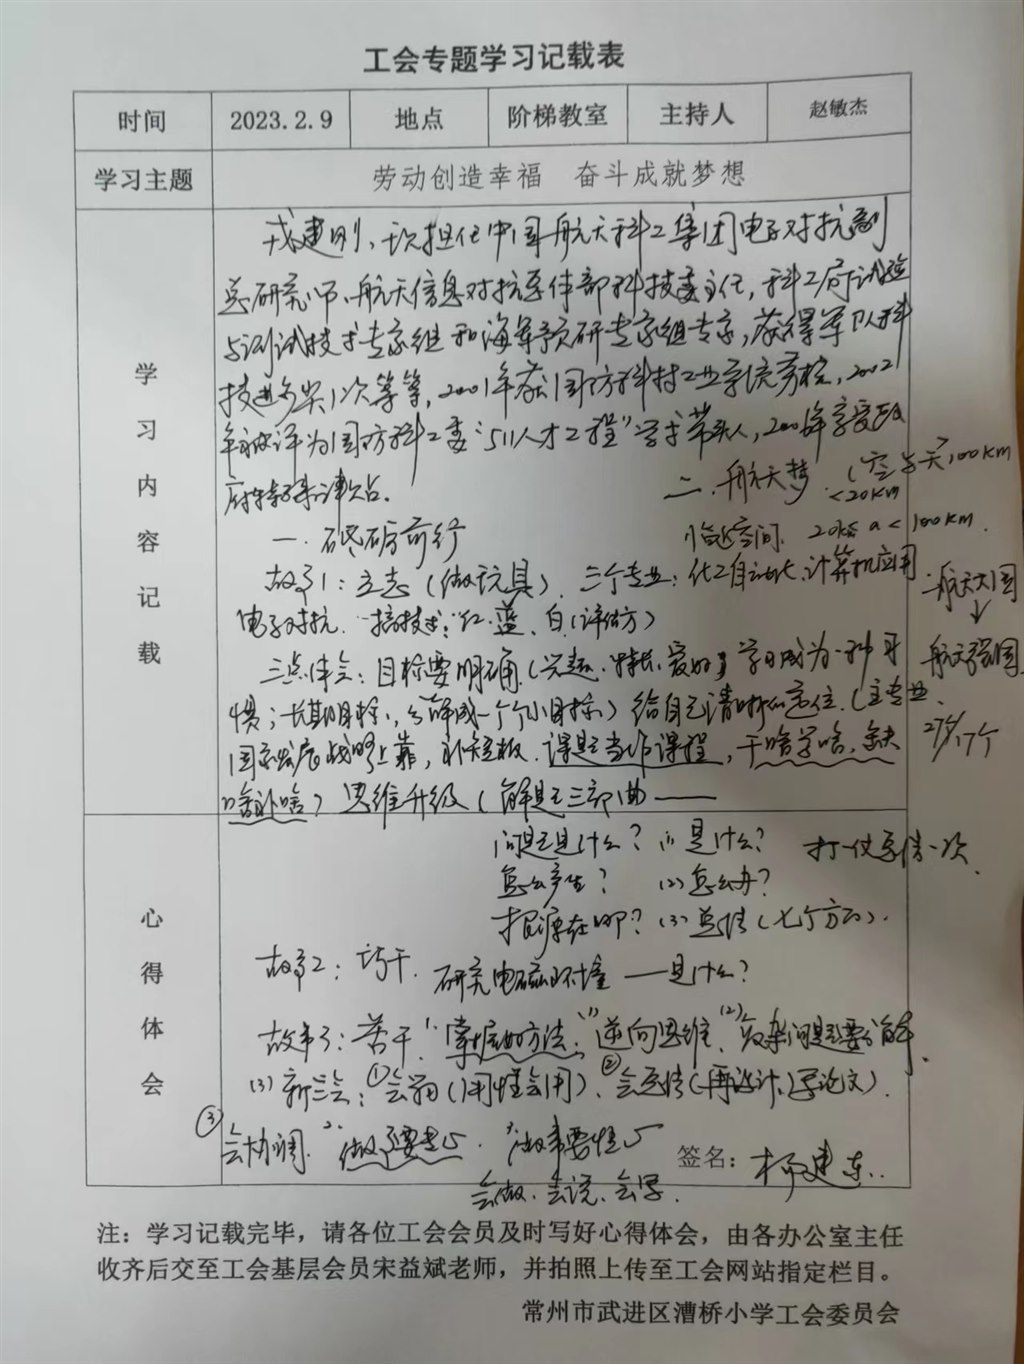 工会专题学习记载表
时间 2023.2.9 地点 阶梯教室 主持人 赵敏杰
学习主题 劳动创造幸福 奋斗成就梦想
学习内容记载
戎建刚、历次担任中国航天科工集团电子对抗副
总研究师、航天信息对抗总体部科技委主任,科工局试验
与测试技术专家组和海军预研专家组专家,获得军队科
技进步奖1次等等,2001年获国防科技工业系统劳模,2002
年被评为国防科工委“511人才工程”学术带头人,2006年享受政
府特殊津贴。
二、航天梦 (空与天 100km
<20km
一、砥砺前行
临近空间 20km < a < 100km.
故事1:立志(做玩具)、三个专业:化工自动化、计算机应用
电子对抗、搞技术:红、蓝、白(评估方)
航天大国
↓
航天强国
三点体会:目标要明确(兴趣、特长、爱好)学习成为一种习
惯;长期目标,分解成一个个小目标)给自己清晰的定位(主专业、
国家发展战略上靠,补短板、课题当作课程,干啥学啥,缺
啥补啥)思维升级(解题三部曲——
275/17个
心得体会
问题是什么? (1)是什么? 打一仗总结一次
怎么产生? (2)怎么办?
根源在哪? (3)总结(七个方面).
故事2:巧干. 研究电磁环境——是什么?
故事3:苦干 1、掌握好方法:(1)逆向思维、(2)复杂问题要分解、
(3)新三会:①会用(用惯会用)、②会总结(再设计、写论文)、
③会协调. 2、做事要专心、3、做事要恒心
会做、会说、会写.
签名:
注:学习记载完毕,请各位工会会员及时写好心得体会,由各办公室主任
收齐后交至工会基层会员宋益斌老师,并拍照上传至工会网站指定栏目。
常州市武进区漕桥小学工会委员会